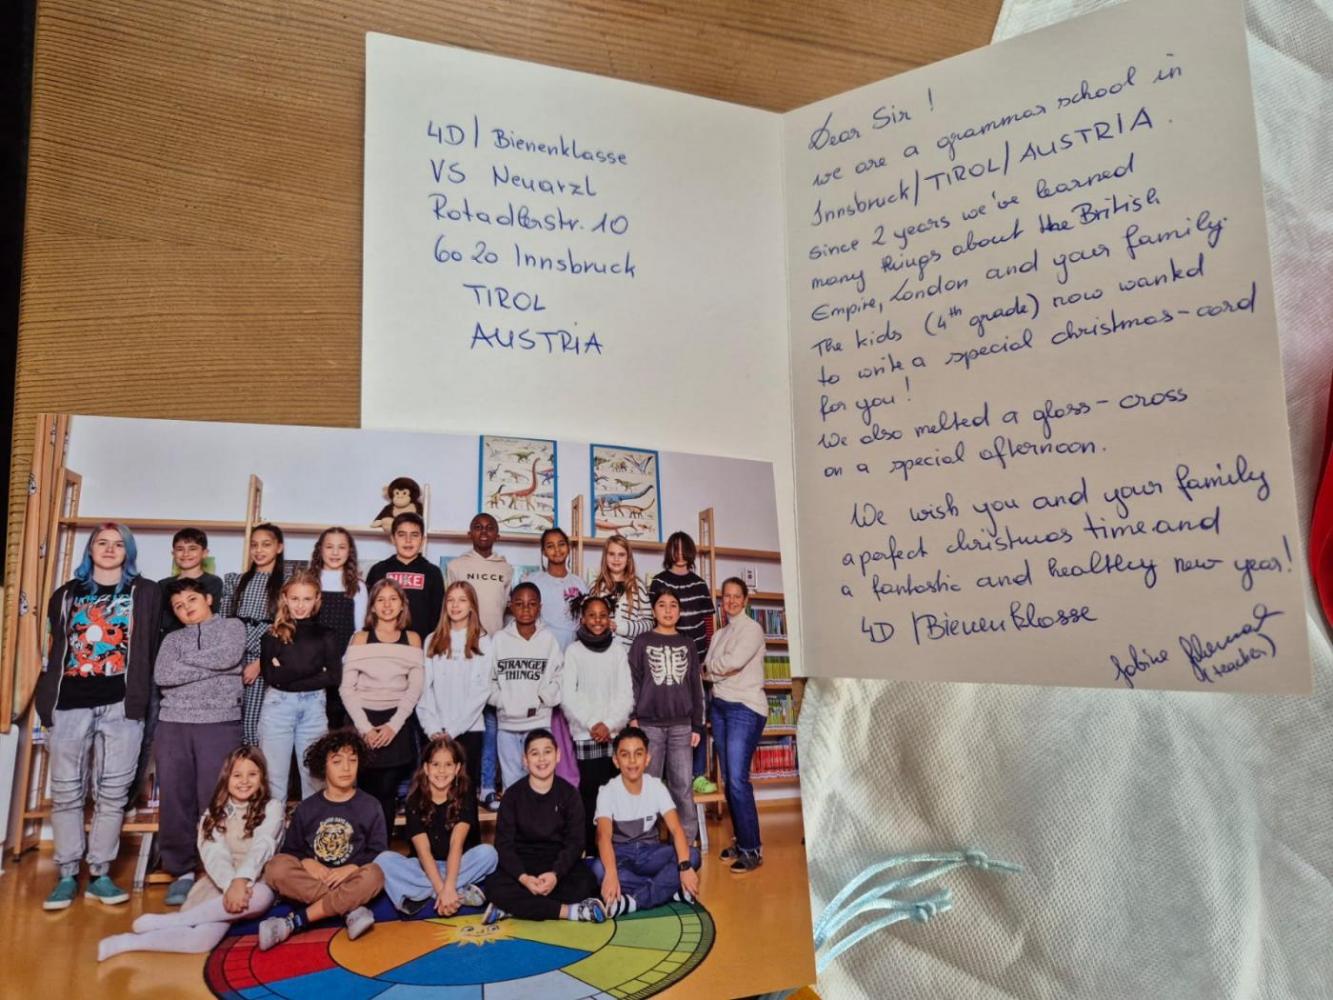 4D | Bienenklasse
VS Neuarzl
Rotadlerstr. 10
6020 Innsbruck
TIROL
AUSTRIA
Dear Sir !
we are a grammar school in
Innsbruck/TIROL/AUSTRIA.
Since 2 years we've learned
many things about the British
Empire, London and your family.
The kids (4th grade) now wanted
to write a special christmas-card
for you!
We also melted a glass-cross
on a special afternoon.
We wish you and your family
a perfect christmas time and
a fantastic and healthy new year!
4D | Bienenklasse
Sabine
(teacher)
NIKE
NICCE
STRANGER
THINGS